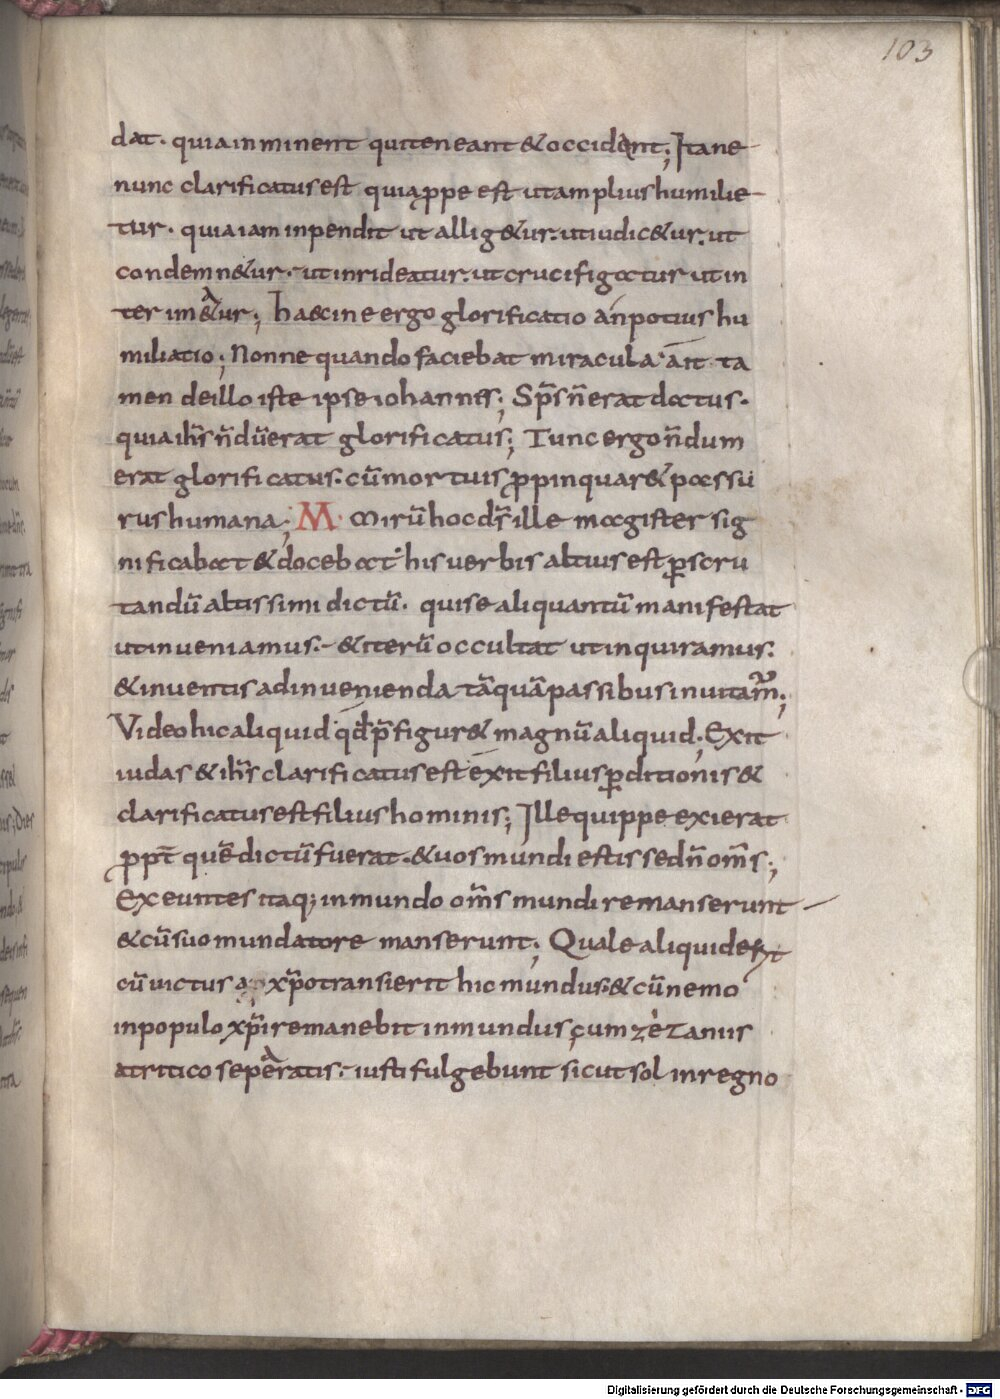 103
dat. quia in minent qui teneant & occident; Itane
nunc clarificatus est quia ꝓpe est ut amplius humilie
tur. quia iam inpendit ut allig&ur. ut iudic&ur. ut
condemn&ur. ut inrideatur. ut crucifigatur ut in
terim&ur; haecine ergo glorificatio án potius hu
miliatio; Nonne quando faciebat miracula. ait ta
men de illo iste ipse iohannis; Sp̅s n̅ erat datus.
quia ih̅s n̅du̅ erat glorificatus; Tunc ergo n̅dum
erat glorificatus. cu̅ mortuis ꝓpinquar& passu
rus humana; M Miru̅ hoc dr̅ ille magister sig
nificabat & docebat his uerbis altius est ꝑscru
tandu̅ altissimi dictu̅. qui se aliquantu̅ manifestat
ut inueniamus. & iteru̅ occultat ut inquiramus.
& inuentis ad inuenienda ta̅qua̅ passibus inuitam̅;
Video hic aliquid qd̅ p̅figur& magnu̅ aliquid; Exiit
iudas & ih̅s clarificatus est exiit filius ꝑditionis &
clarificatus est filius hominis; Ille quippe exierat
ꝓpt̅ que̅ dictu̅ fuerat. & uos mundi estis sed n̅ om̅s;
Exeuntes itaq; inmundo om̅s mundi remanserunt
& cu̅ suo mundatore manserunt; Quale aliquid
cu̅ uictus a xp̅o transierit hic mundus. & cu̅ nemo
in populo xp̅i remanebit inmundus, cum zèzaniis
a tritico seperatis. iusti fulgebunt sicut sol in regno
Digitalisierung gefördert durch die Deutsche Forschungsgemeinschaft - DFG